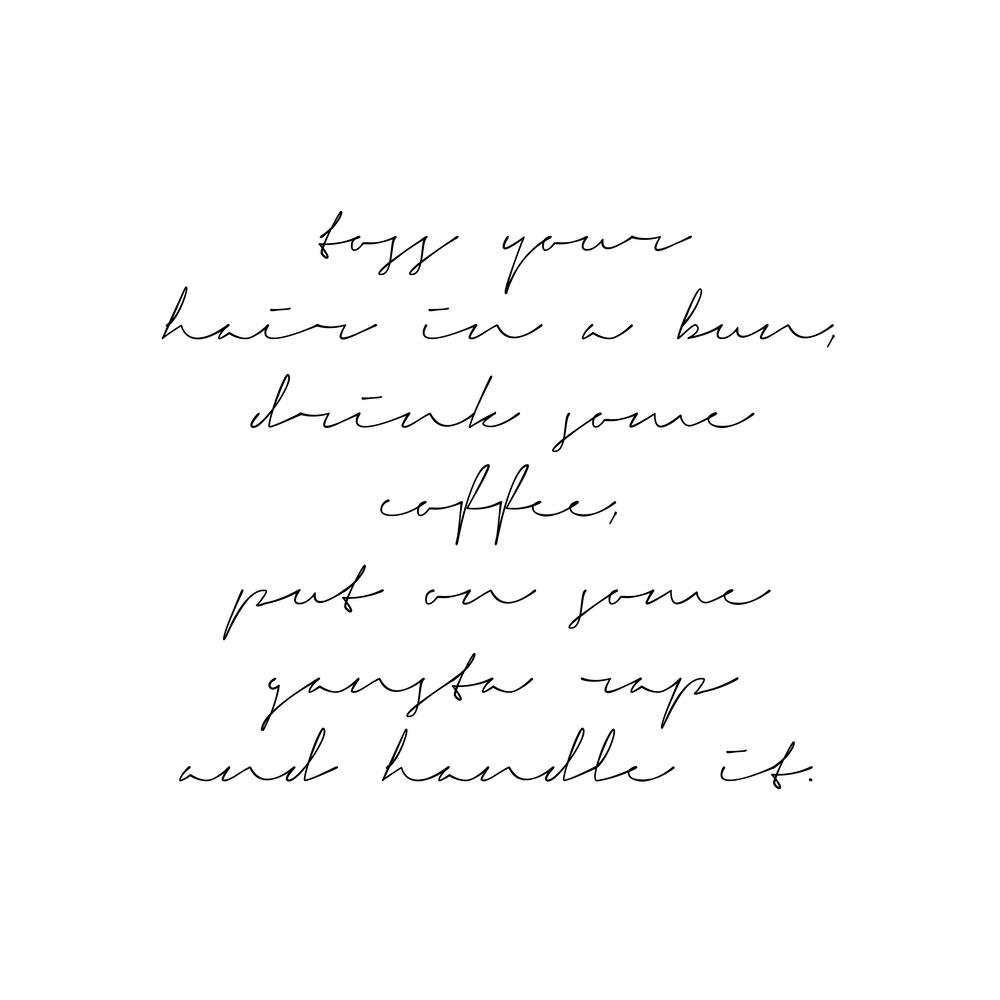 toss your
hair in a bun,
drink some
coffee,
put on some
gangsta rap
and handle it.